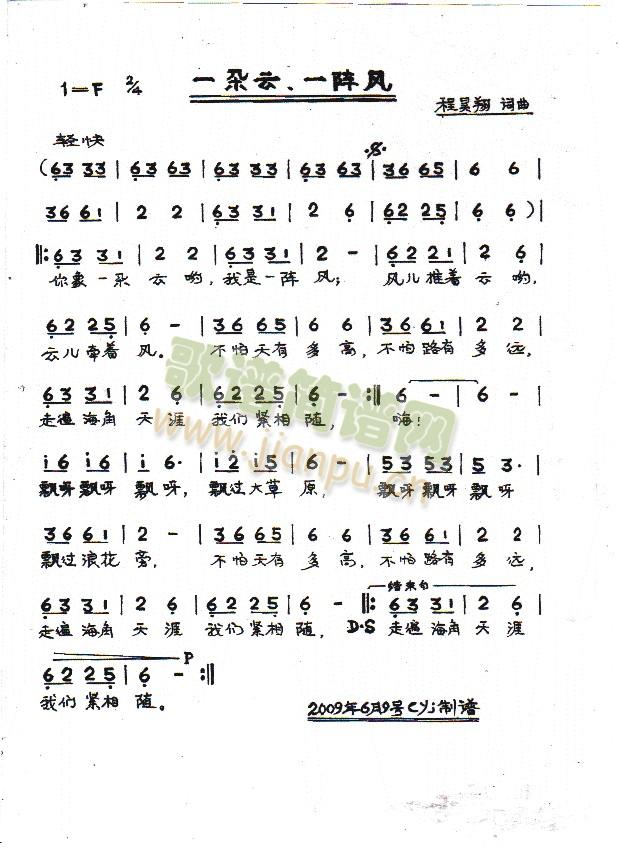 一朵云、一阵风
1=F 2/4
程昊翔 词曲
轻快
(63 33 | 63 63 | 63 33 | 63 63 | 36 65 | 6 6 |
36 61 | 2 2 | 63 31 | 2 6 | 62 25 | 6 6 ) |
‖: 63 31 | 2 2 | 63 31 | 2 - | 62 21 | 2 6 |
你象一朵云哟,我是一阵风; 风儿推着云哟,
62 25 | 6 - | 36 65 | 6 6 | 36 61 | 2 2 |
云儿牵着风。不怕天有多高,不怕路有多远,
63 31 | 2 6 | 62 25 | 6 - :‖ 6 - | 6 - |
走遍海角天涯 我们紧相随, 嗨!
i6 i6 | i 6· | i2 i5 | 6 - | 53 53 | 5 3· |
飘呀飘呀飘呀,飘过大草原,飘呀飘呀飘呀
36 61 | 2 - | 36 65 | 6 6 | 36 61 | 2 2 |
飘过浪花旁, 不怕天有多高,不怕路有多远,
结束句
63 31 | 2 6 | 62 25 | 6 - ‖: 63 31 | 2 6 |
走遍海角天涯 我们紧相随, D·S 走遍海角天涯
P
62 25 | 6 - :‖
我们紧相随。
2009年6月9号cyj制谱
歌谱简谱网
www.jianpu.cn